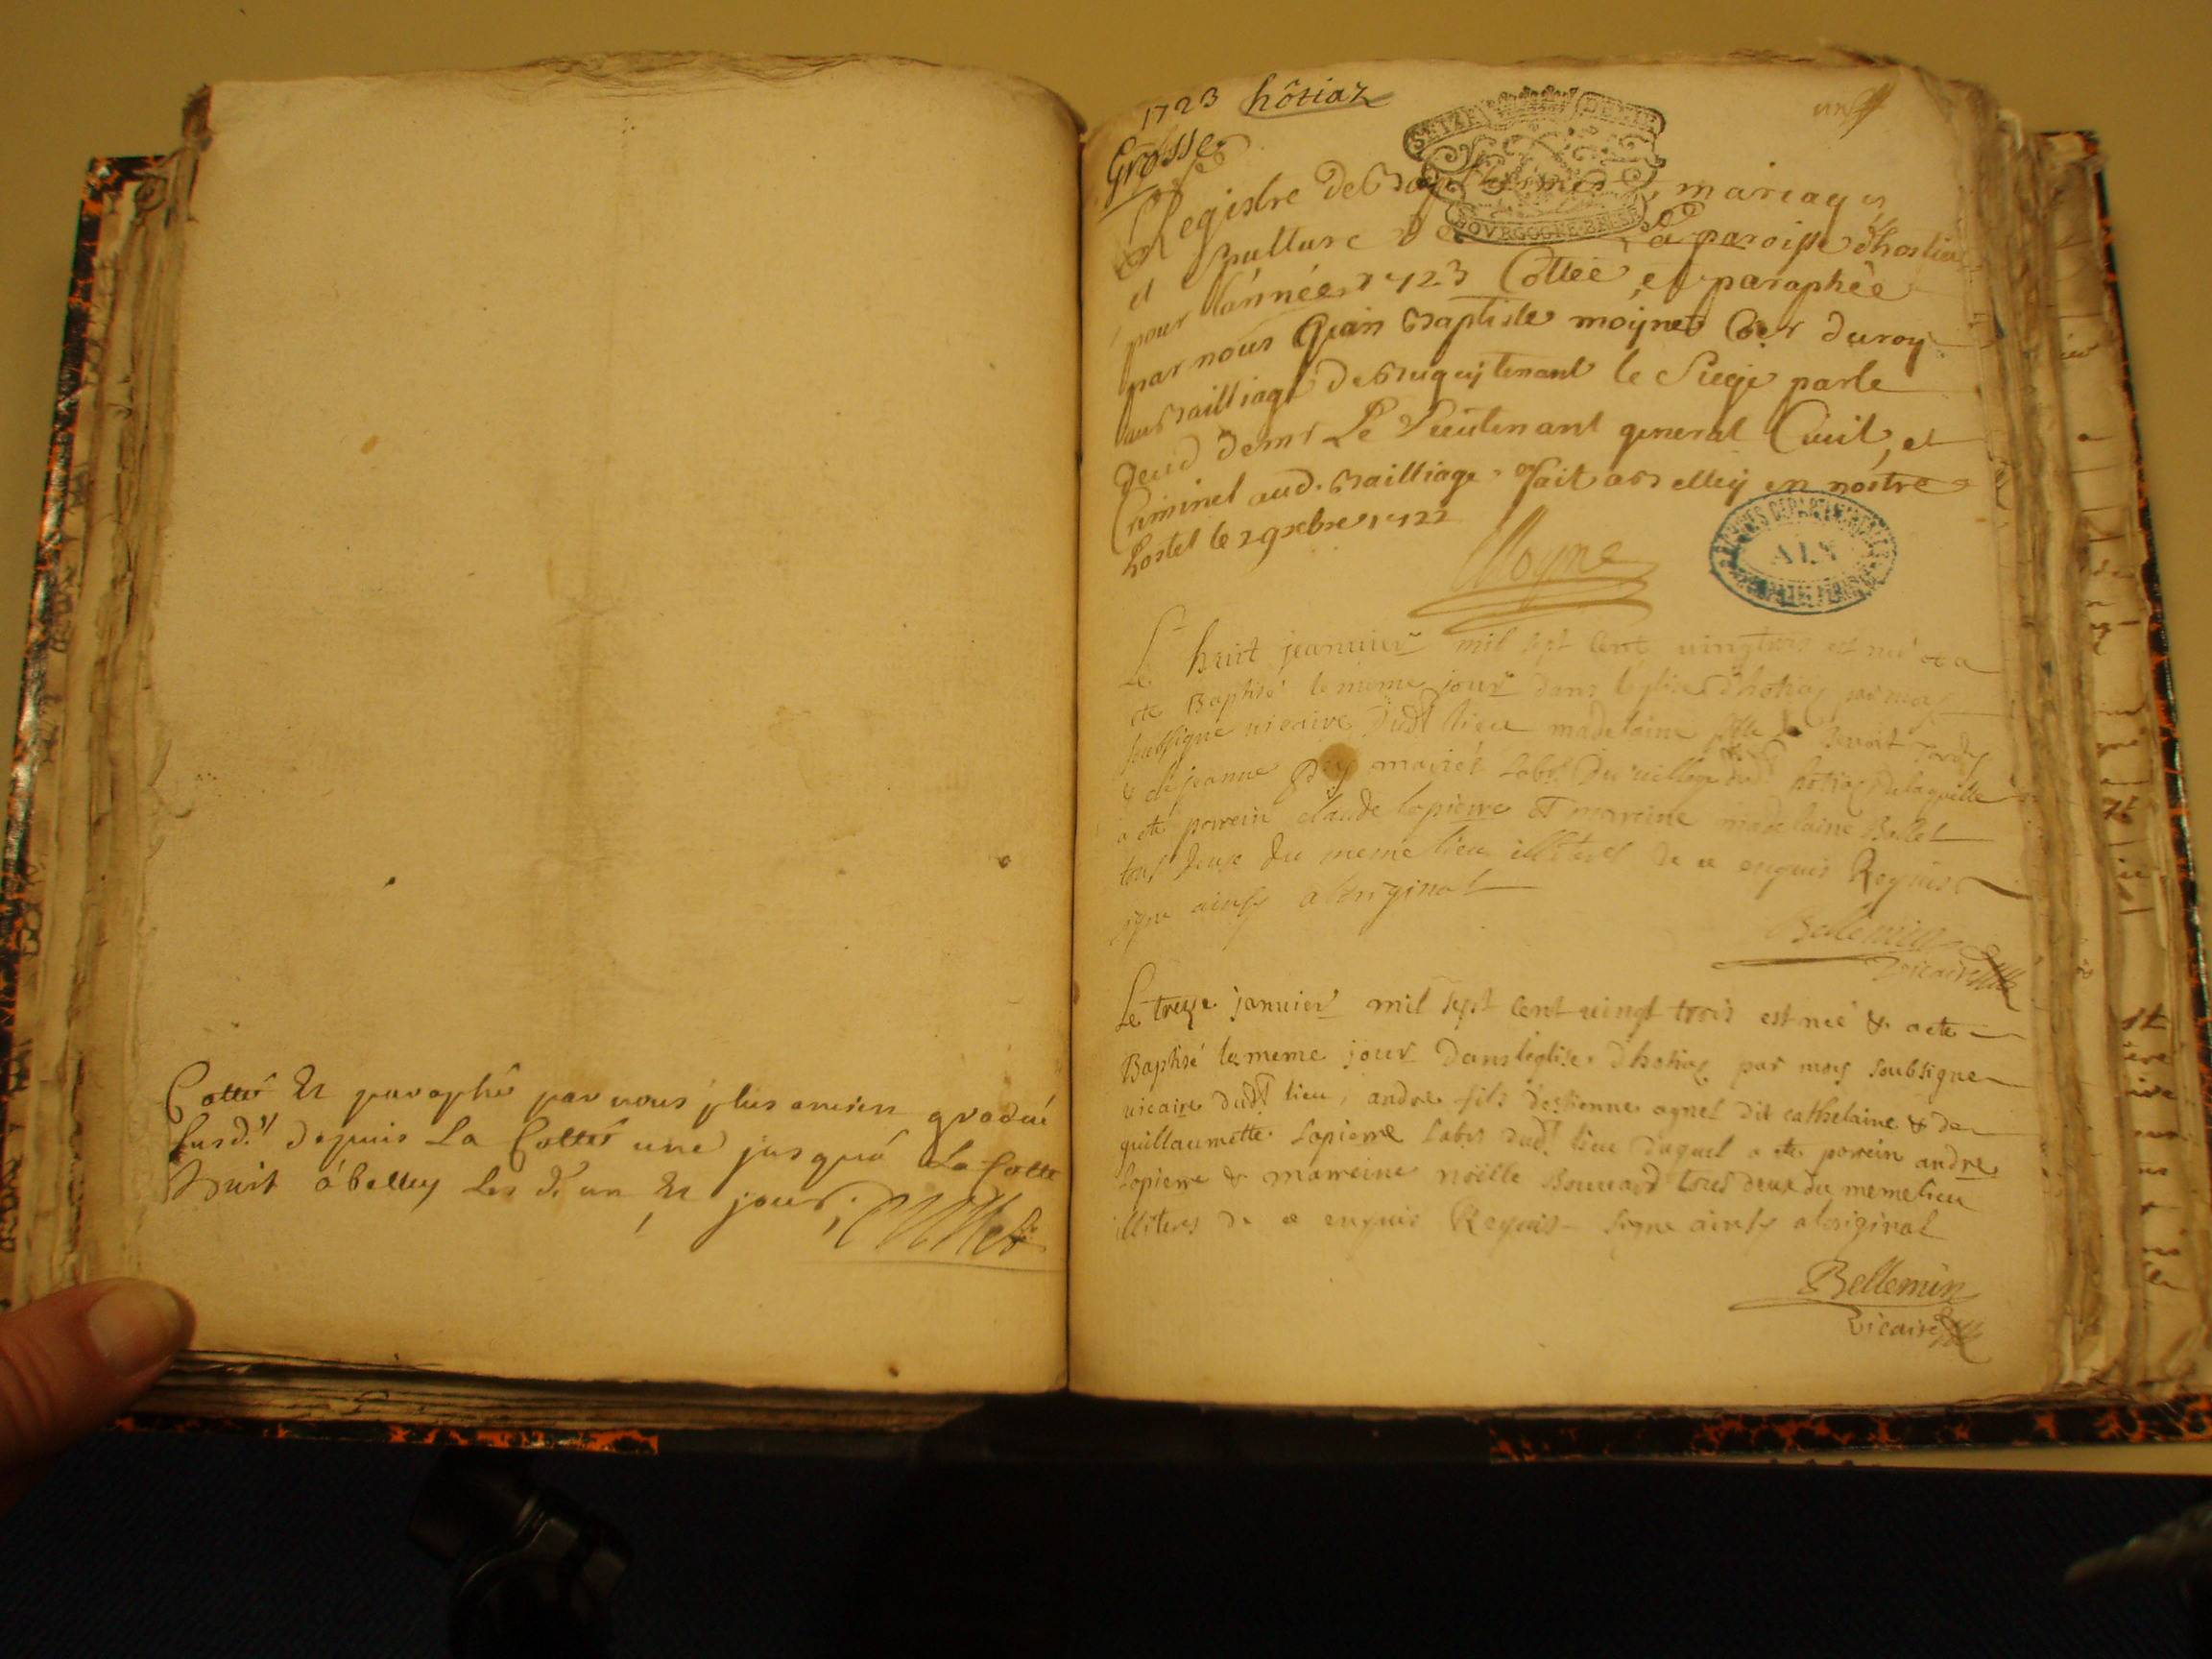 Cottés Et paraphé par nous plus ancien gradué
susd.t depuis La Cotte une jusqua La Cotte
huit á belley Les d. an Et jour,
1723 hôtiaz
Grosse
un
SEIZE DENIE
BOVRGOGNE BRESSE
Registre de Baptesmes, mariages
et Sepulture de La paroisse d'hostiaz
pour l'année 1723 Cottée et paraphée
par nous Jean Baptiste moynet Coer du roy
au Bailliage de Bugey tenant le Siege par le
deced de mr Le Lieutenant general Civil, et
Criminel aud. Bailliage. fait a Belley en nostre
hostel le 29 xbre 1722
Moyne
ARCHIVES DEPARTEMENTALES
AIN
Le huit jeanvier mil sept cent vingt trois est né & a
ete Baptisé le meme jour dans leglise d'hotiaz par moy
soubsigne vicaire dudt lieu madelaine fille de Benoit
& de jeanne mariés labrs du village dudt hotiaz de laquelle
a ete parrein claude lapierre & marreine madelaine Ballet
tous deux du meme lieu illiteres de ce enquis Requis
signe ainsy a loriginal
Bellemin
vicaire
Le treize janvier mil sept cent vingt trois est né & a ete
Baptisé le meme jour dans leglise d'hotiaz par moy soubsigne
vicaire dudt lieu, andre fils d'estienne agnel dit cathelaine & de
guillaumette Lapierre Labrs dudt lieu duquel a ete parrein andre
Lapierre & marreine noëlle Bouvard tous deux du meme lieu
illiteres de ce enquis Requis signe ainsy a loriginal
Bellemin
vicaire